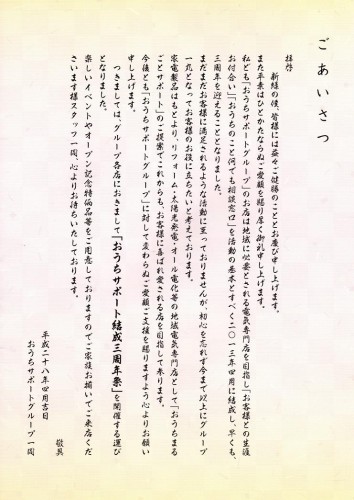 ごあいさつ
拝啓
新緑の候、皆様には益々ご健勝のこととお慶び申し上げます。
また平素はひとかたならぬご愛顧を賜り厚く御礼申し上げます。
私ども「おうちサポートグループ」のお店は地域に必要とされる電気専門店を目指し「お客様との生涯
お付合い」「おうちのこと何でも相談窓口」を活動の基本とすべく二〇一三年四月に結成し、早くも、
三周年を迎えることとなりました。
まだまだお客様に満足されるような活動に至っておりませんが、初心を忘れず今まで以上にグループ
一丸となってお客様のお役に立ちたいと考えております。
家電製品はもとより、リフォーム・太陽光発電・オール電化等の地域電気専門店として「おうちまる
ごとサポート」のご提案でこれからも、お客様に喜ばれ愛される店を目指して参ります。
今後とも「おうちサポートグループ」に対して変わらぬご愛顧ご支援を賜りますよう心よりお願い
申し上げます。
つきましては、グループ各店におきまして「おうちサポート結成三周年祭」を開催する運び
となりました。
楽しいイベントやオープン記念特価品等をご用意しておりますのでご家族お揃いでご来店くだ
さいます様スタッフ一同、心よりお待ちいたしております。
敬具
平成二十八年四月吉日
おうちサポートグループ一同